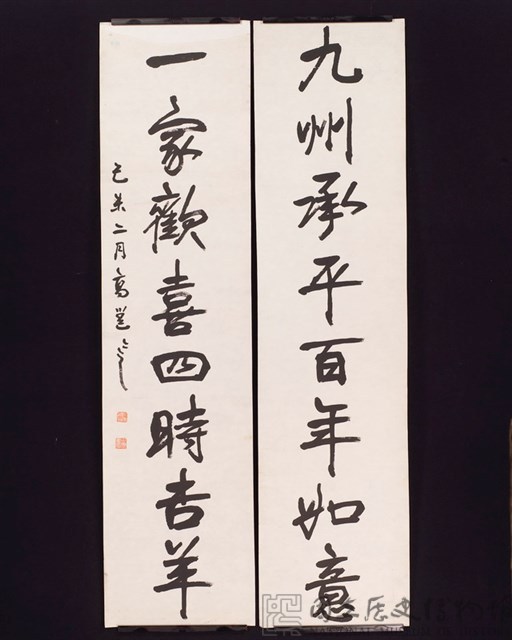 九州承平百年如意
一家歡喜四時吉羊
己未二月高邕